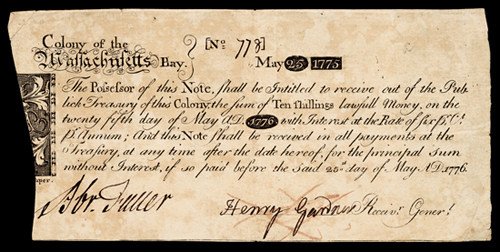 Colony of the
Massachusetts Bay. } [No 778] May 25 1775
The Possessor of this Note, shall be Intitled to receive out of the Pub
lick Treasury of this Colony, the sum of Ten shillings lawfull Money, on the
twenty fifth day of May A.D. 1776 with Interest at the Rate of six pr. Ct.
pr. Annum; And this Note shall be received in all payments at the
Treasury, at any time after the date hereof, for the principal sum
without Interest, if so paid before the said 25th day of May AD. 1776.
Abr. Fuller
Henry Gardner Receivr. Generl.